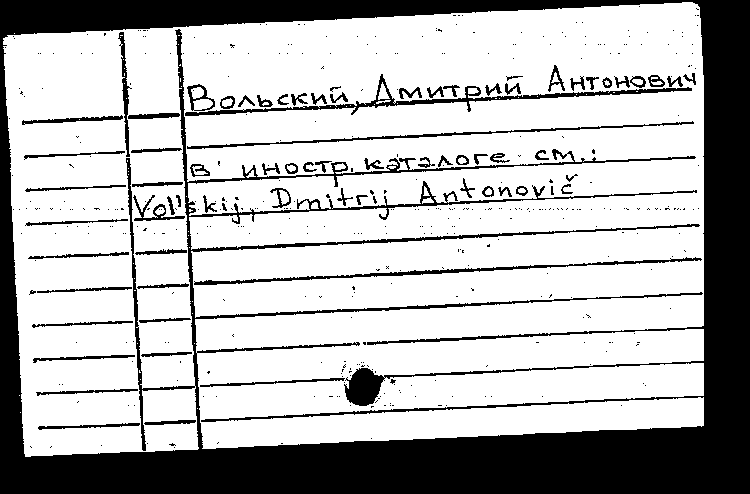 Вольский, Дмитрий Антонович
в иностр. каталоге см.:
Vol'skij, Dmitrij Antonovič